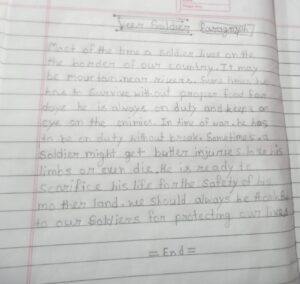 Veer Soldier Paragraph
Most of the time a soldier lives on the
the border of our country. It may
be mountain, near rivers. Some times he
have to survive without proper food for
days he is always on duty and keeps an
eye on the enimies. In time of war he has
to be on duty without breaks. Sometimes, a
soldier might get butter injuries. lose his
limbs or even die. He is ready to
scarifice his life for the safety of his
mother land. we should always be thank
to our Soldiers for protecting our lives
= End =